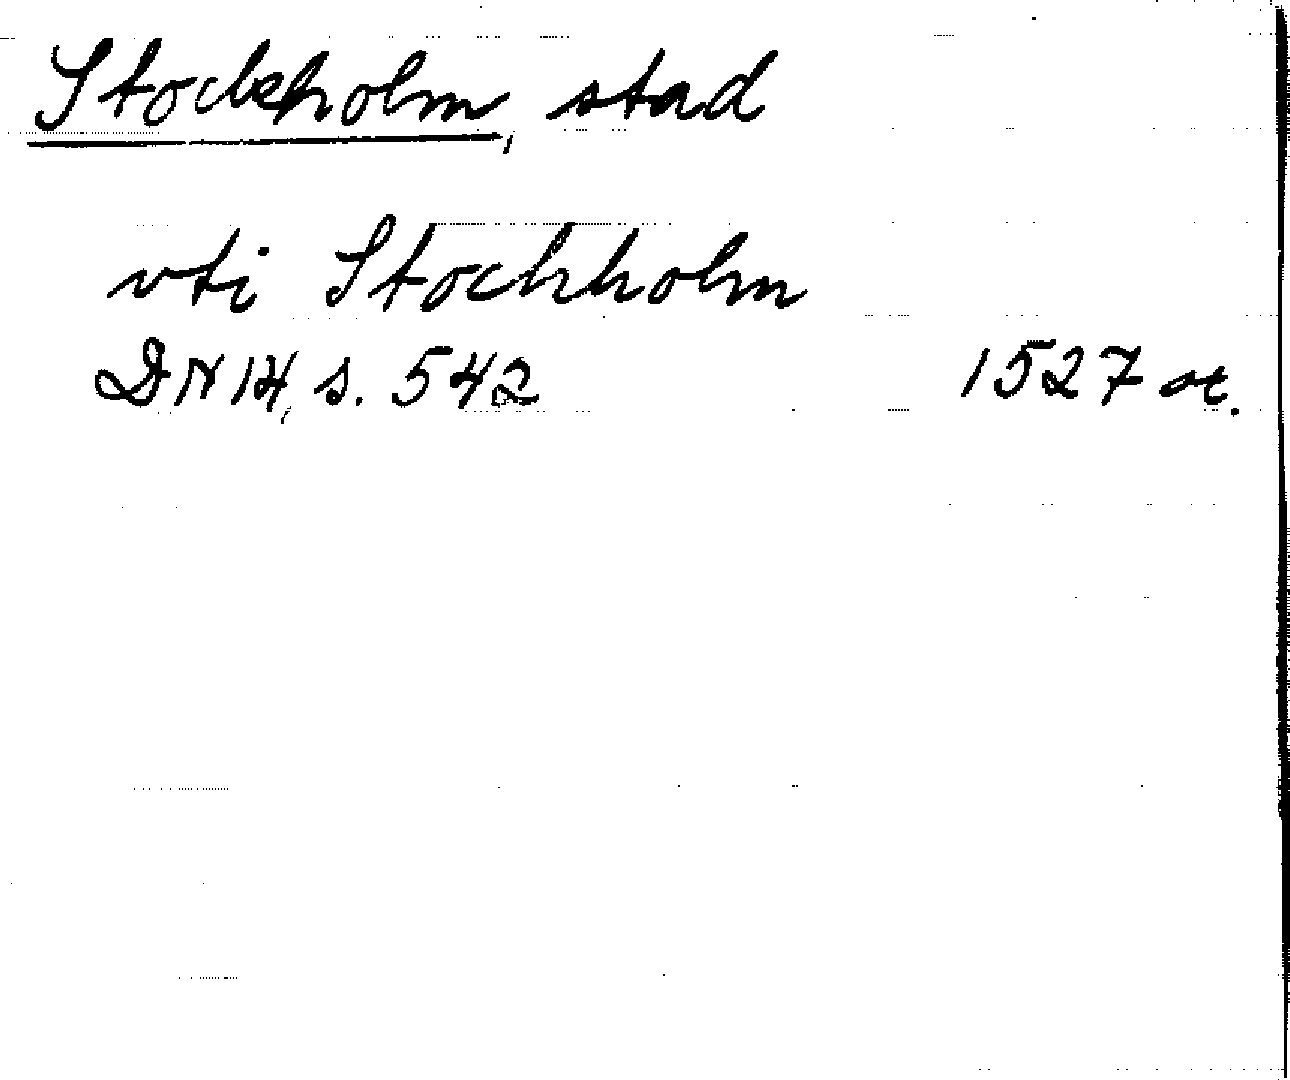 Stockholm, stad
vti Stochholm
DN 14, s. 542 1527 or.